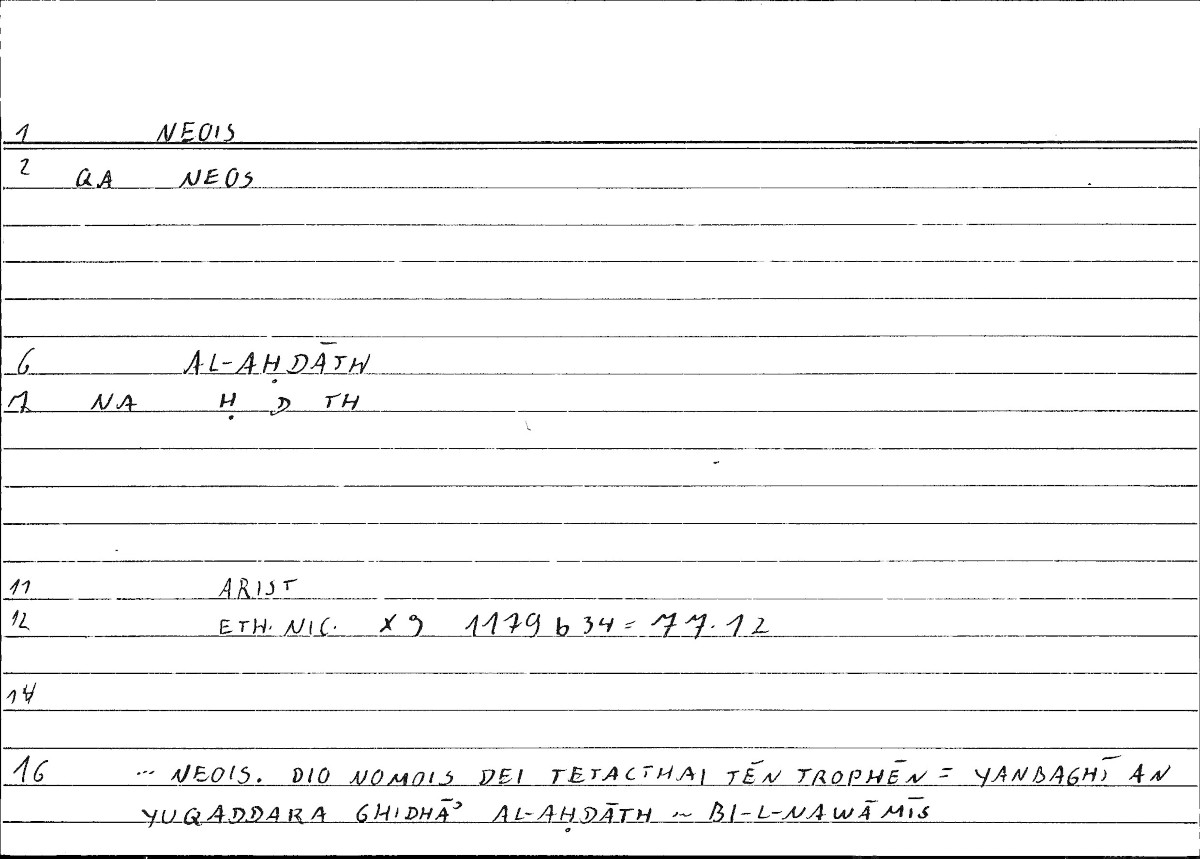 1 NEOIS
2 QA NEOS
6 AL-AḤDĀTH
7 NA Ḥ D TH
11 ARIST
12 ETH. NIC. X 9 1179 b 34 = 77.12
14
16 ... NEOIS. DIO NOMOIS DEI TETACTHAI TĒN TROPHĒN = YANBAGHĪ AN
YUQADDARA GHIDHĀʾ AL-AḤDĀTH ~ BI-L-NAWĀMĪS